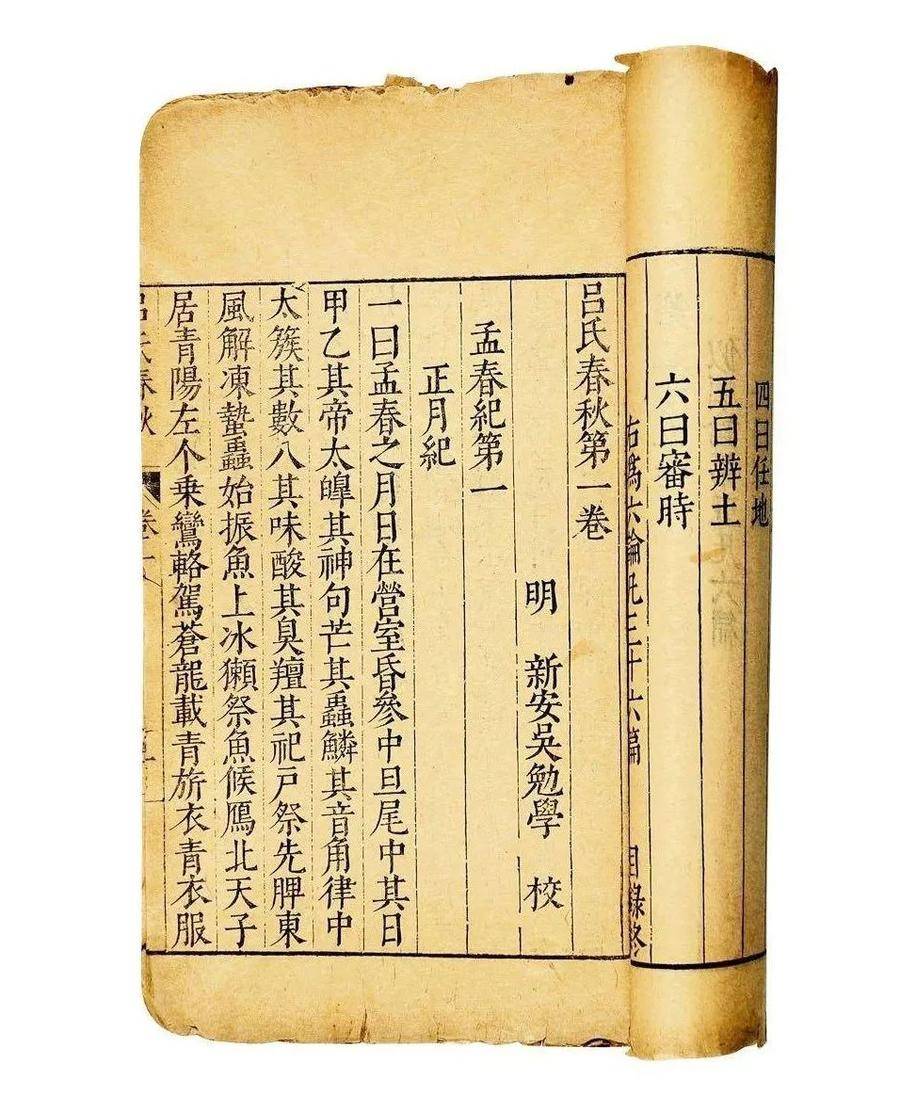 四曰任地
五曰辨土
六曰審時
右爲六論凡三十六篇 目錄終
呂氏春秋第一卷
明 新安吳勉學 校
孟春紀第一
正月紀
一曰孟春之月日在營室昏參中旦尾中其日
甲乙其帝太皡其神句芒其蟲鱗其音角律中
太簇其數八其味酸其臭羶其祀戶祭先脾東
風解凍蟄蟲始振魚上冰獺祭魚候鴈北天子
居青陽左个乗鸞輅駕蒼龍載青旂衣青衣服
呂氏春秋 卷一